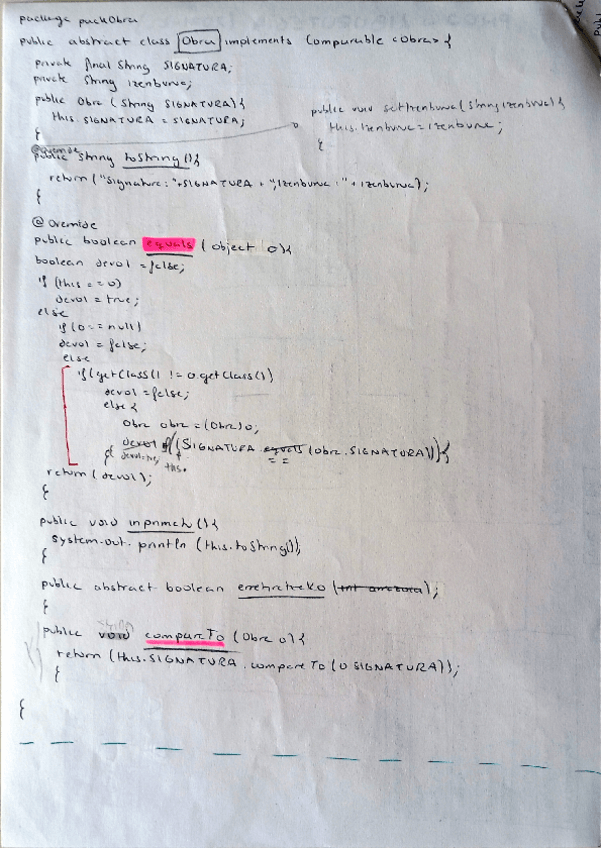 package packObra
public abstract class Obra implements Comparable <Obra> {
private final String SIGNATURA;
private String izenburua;
public Obra (String SIGNATURA){
this.SIGNATURA = SIGNATURA;
}
public void setIzenburua(String izenburua){
this.izenburua = izenburua;
}
@Override
public String toString(){
return("Signatura: "+SIGNATURA + ", Izenburua: " + izenburua);
}
@Override
public boolean equals (Object o){
boolean devol = false;
if (this == o)
devol = true;
else
if (o == null)
devol = false;
else
if(getClass() != o.getClass())
devol = false;
else {
Obra obra = (Obra) o;
devol if (SIGNATURA equals (obra.SIGNATURA)){
== 
this.
return (devol);
}
public void inprimatu(){
System.out.println (this.toString());
}
public abstract boolean erretratuko (int );
}
public void compareTo (Obra o){
return (this.SIGNATURA.compareTo (o SIGNATURA));
}
}